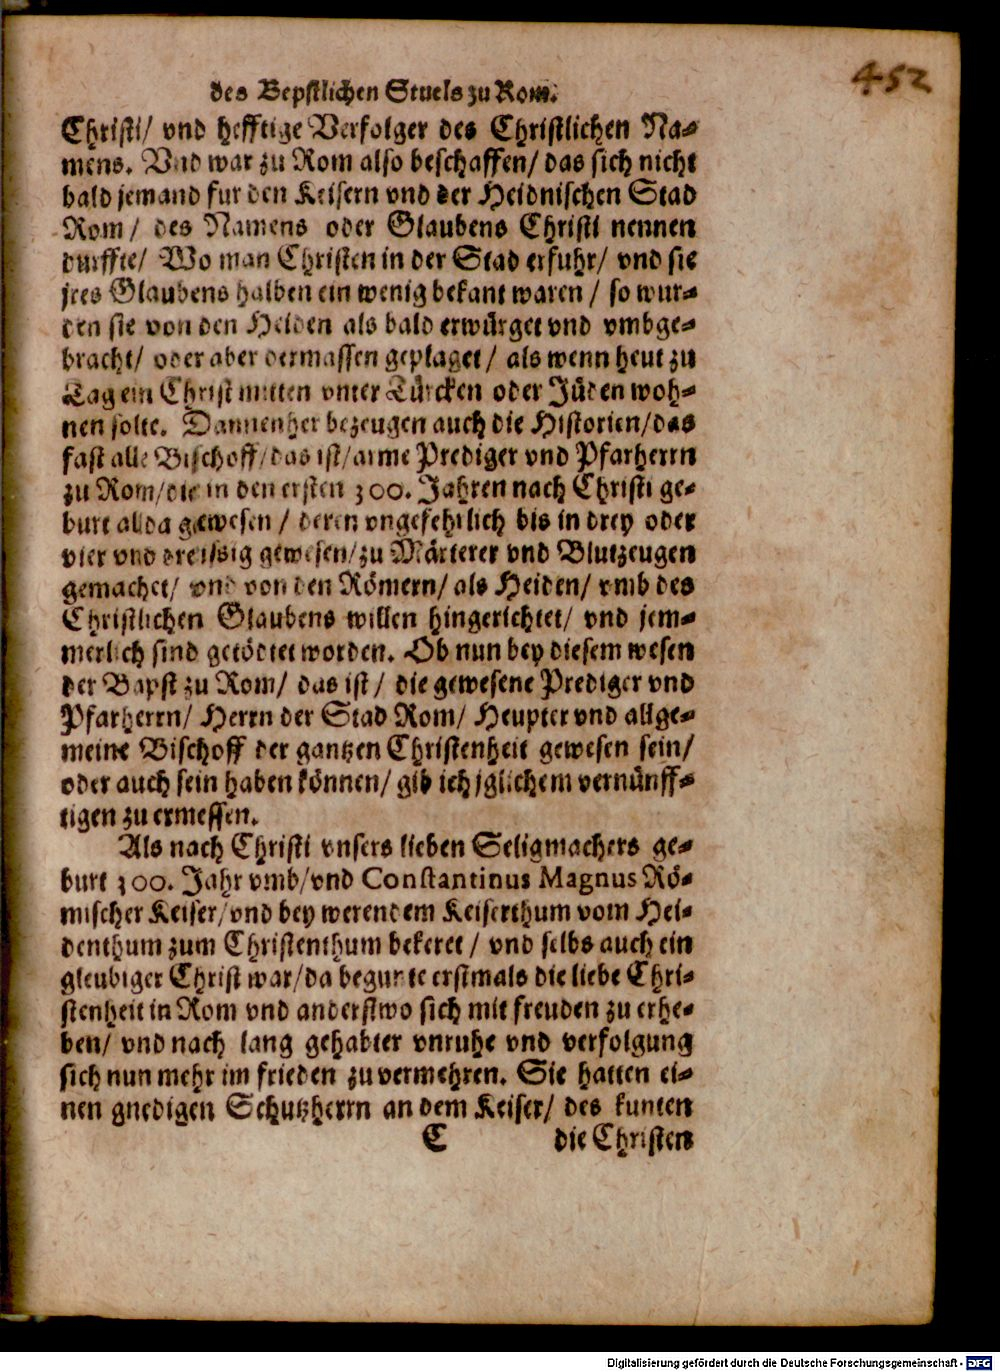 452
des Bepstlichen Stuels zu Rom.
Christi/ vnd hefftige Verfolger des Christlichen Na⸗
mens. Vnd war zu Rom also beschaffen/ das sich nicht
bald jemand fur den Keisern vnd der Heidnischen Stad
Rom/ des Namens oder Glaubens Christi nennen
durffte/ Wo man Christen in der Stad erfuhr/ vnd sie
jres Glaubens halben ein wenig bekant waren/ so wur⸗
den sie von den Heiden als bald erwürget vnd vmbge⸗
bracht/ oder aber dermassen geplaget/ als wenn heut zu
Tag ein Christ mitten vnter Türcken oder Jüden woh⸗
nen solte. Dannenher bezeugen auch die Historien/ das
fast alle Bischoff/ das ist/ arme Prediger vnd Pfarherrn
zu Rom/ die in den ersten 300. Jahren nach Christi ge⸗
burt allda gewesen/ deren vngefehrlich bis in drey oder
vier vnd dreissig gewesen/ zu Märterer vnd Blutzeugen
gemachet/ vnd von den Römern/ als Heiden/ vmb des
Christlichen Glaubens willen hingerichtet/ vnd jem⸗
merlich sind getödtet worden. Ob nun bey diesem wesen
der Bapst zu Rom/ das ist/ die gewesene Prediger vnd
Pfarherrn/ Herrn der Stad Rom/ Heupter vnd allge⸗
meine Bischoff der gantzen Christenheit gewesen sein/
oder auch sein haben können/ gib ich jglichem vernünff⸗
tigen zu ermessen.
Als nach Christi vnsers lieben Seligmachers ge⸗
burt 300. Jahr vmb/ vnd Constantinus Magnus Rö⸗
mischer Keiser/ vnd bey werendem Keiserthum vom Hei⸗
denthum zum Christenthum bekeret/ vnd selbs auch ein
gleubiger Christ war/ da begunte erstmals die liebe Chri⸗
stenheit in Rom vnd anderstwo sich mit freuden zu erhe⸗
ben/ vnd nach lang gehabter vnruhe vnd verfolgung
sich nun mehr im frieden zu vermehren. Sie hatten ei⸗
nen gnedigen Schutzherrn an dem Keiser/ des kunten
C die Christen
Digitalisierung gefördert durch die Deutsche Forschungsgemeinschaft - DFG